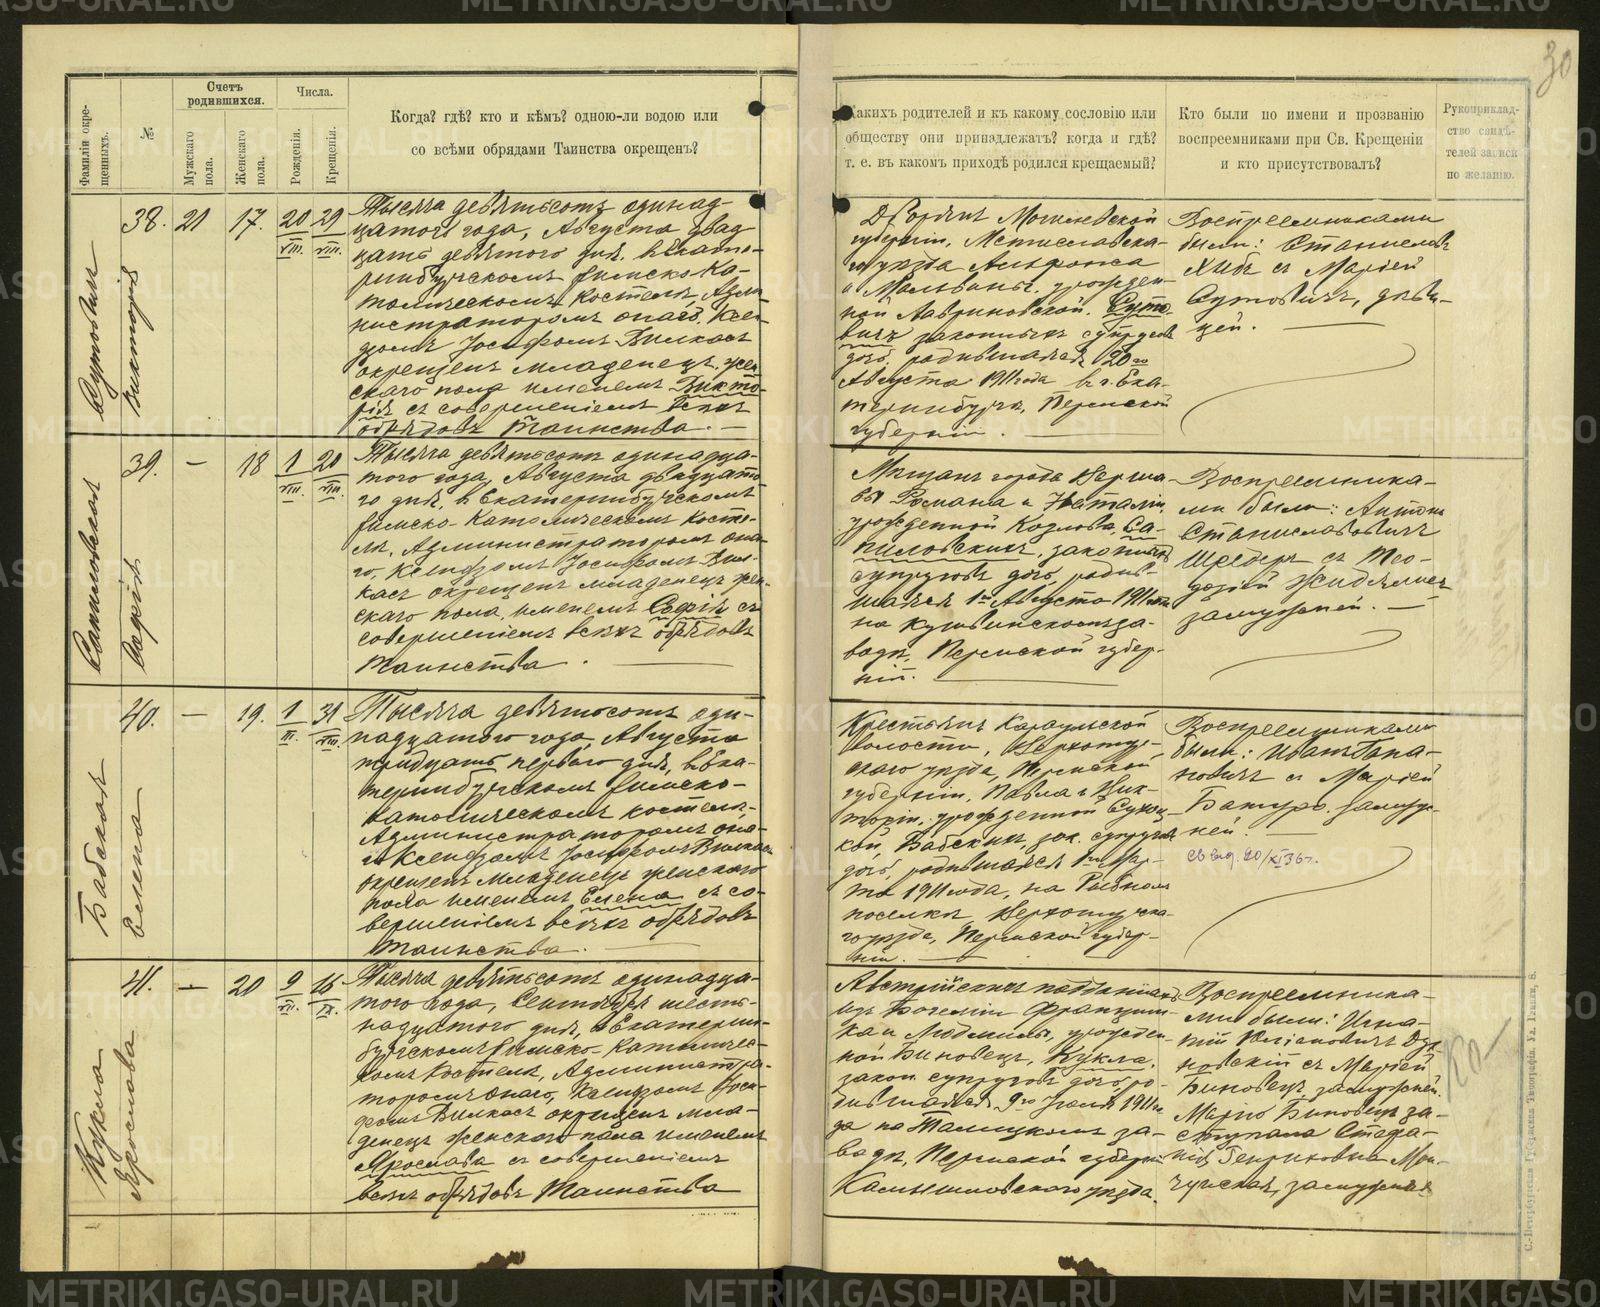 30
Фамиліи окре-
щенныхъ.
№
Счетъ
родившихся.
Мужскаго
пола.
Женскаго
пола.
Числа.
Рожденія.
Крещенія.
Когда? гдѣ? кто и кѣмъ? одною-ли водою или
со всѣми обрядами Таинства окрещенъ?
Какихъ родителей и къ какому сословію или
обществу они принадлежатъ? когда и гдѣ?
т. е. въ какомъ приходѣ родился крещаемый?
Кто были по имени и прозванію
воспреемниками при Св. Крещеніи
и кто присутствовалъ?
Рукоприклад-
ство свидѣ-
телей записи
по желанію.
Сутовичъ
Викторія
38. 21 17. 20/VIII. 29/VIII.
Тысяча девятьсотъ одинад-
цатого года, Августа двад
цать девятого дня, въ Екате-
ринбургскомъ Римско-Ка-
толическомъ Костелѣ, Адми-
нистраторомъ онаго, Ксен-
дзомъ Іосифомъ Вилкасъ
окрещенъ младенецъ жен
скаго пола именемъ Викто-
рія съ совершеніемъ всѣхъ
обрядовъ Таинства.
Дворянъ Могилевской
губерніи, Мстиславска-
го уѣзда Альфонса
и Мальвины, урожден-
ной Лавриновской, Суто-
вичъ законныхъ супруговъ
дочь, родившаяся 20го
Августа 1911 года въ г. Ека-
теринбургѣ, Пермской
губерніи.
Воспреемниками
были: Станиславъ
Хыбъ съ Маріей
Сутовичъ, дѣви-
цей.
Сапиловская
Софія
39. — 18 1/VIII. 20/VIII.
Тысяча девятьсотъ одинадца-
того года, Августа двадцато-
го дня, въ Екатеринбургскомъ
Римско-Католическомъ Косте-
лѣ, Администраторомъ она-
го, Ксендзомъ Іосифомъ Вил-
касъ окрещенъ младенецъ жен-
скаго пола, именемъ Софія съ
совершеніемъ всѣхъ обрядовъ
Таинства.
Мѣщанъ города Варша-
вы Романа и Наталіи
урожденной Козлова, Са-
пиловскихъ, законныхъ
супруговъ дочь, родив-
шаяся 1го Августа 1911 года
на Кушвинскомъ за-
водѣ, Пермской губер-
ніи.
Воспреемника-
ми были: Антонъ
Станиславовичъ
Шредеръ съ Тео-
дозіей
замужней.
Бабская
Елена
40. — 19. 1/III. 31/VIII.
Тысяча девятьсотъ оди-
надцатого года, Августа
тридцать перваго дня, въ Ека-
теринбургскомъ Римско-
католическомъ костелѣ,
Администраторомъ она-
го Ксендзомъ Іосифомъ Вилкасъ
окрещенъ младенецъ женскаго
пола именемъ Елена съ со-
вершеніемъ всѣхъ обрядовъ
Таинства.
Крестьянъ Караульской
волости, Верхотур-
скаго уѣзда, Пермской
губерніи, Павла и Вик-
торіи, урожденной Сухоц-
кой, Бабскихъ, зак. супруговъ
дочь, родившаяся 1го Мар-
та 1911 года, на
поселкѣ, Верхотурска-
го уѣзда, Пермской губер-
ніи.
Воспреемниками
были: Иванъ
новичъ съ Маріей
Батуро, замуж-
ней.
Св выд. 20/XI 36 г.
Кукла
Ярослава
41. — 20 9/VII. 16/IX.
Тысяча девятьсотъ одинадца-
того года, Сентября шест-
надцатого дня, въ Екатерин-
бургскомъ Римско-Католичес-
комъ Костелѣ, Администра-
торомъ онаго, Ксендзомъ Іоси-
фомъ Вилкасъ окрещенъ мла-
денецъ женскаго пола именемъ
Ярослава съ совершеніемъ
всѣхъ обрядовъ Таинства
Австрійскихъ подданныхъ
изъ Богеміи Францишка
и Людмилы, урожден-
ной Биновецъ, Кукла,
закон. супруговъ дочь, ро-
дившаяся 9го Іюля 1911 го
да на Талицкомъ за-
водѣ, Пермской губерніи
Камышловскаго уѣзда.
Воспреемника-
ми были: Игна-
тій Юліановичъ
новскій съ Маріей
Биновецъ, замужней.
Марію Биновецъ за-
ступала Стефа-
нія Генриховна
замужняя
С.-Петербургская Губернская Типографія.
METRIKI.GASO-URAL.RU